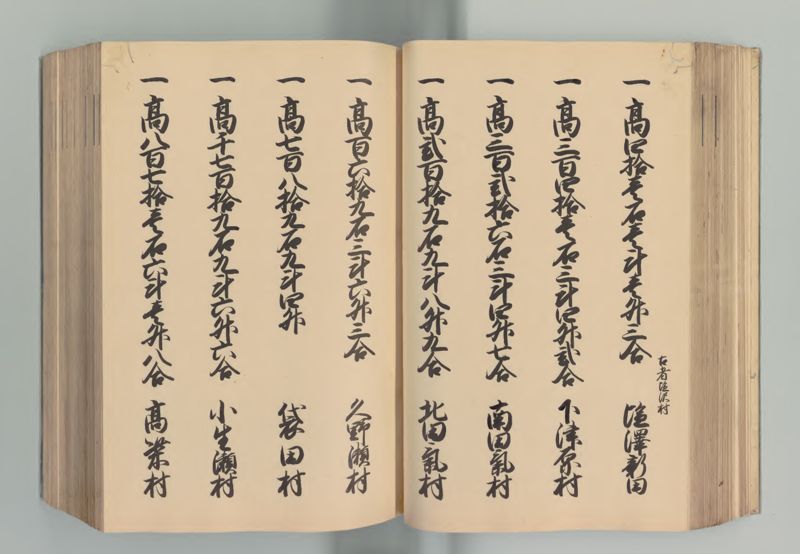 一 高四拾壱石壱斗壱升三合 塩澤新田
古者塩沢村
一 高三百四拾壱石三斗四升弐合 下津原村
一 高三百弐拾六石三斗四升七合 南田氣村
一 高弐百拾九石九斗八升九合 北田氣村
一 高百六拾九石三斗六升三合 久野瀬村
一 高七百八拾九石九斗四升 袋田村
一 高千七百拾九石九斗六升六合 小生瀬村
一 高八百七拾壱石六斗壱升八合 高柴村